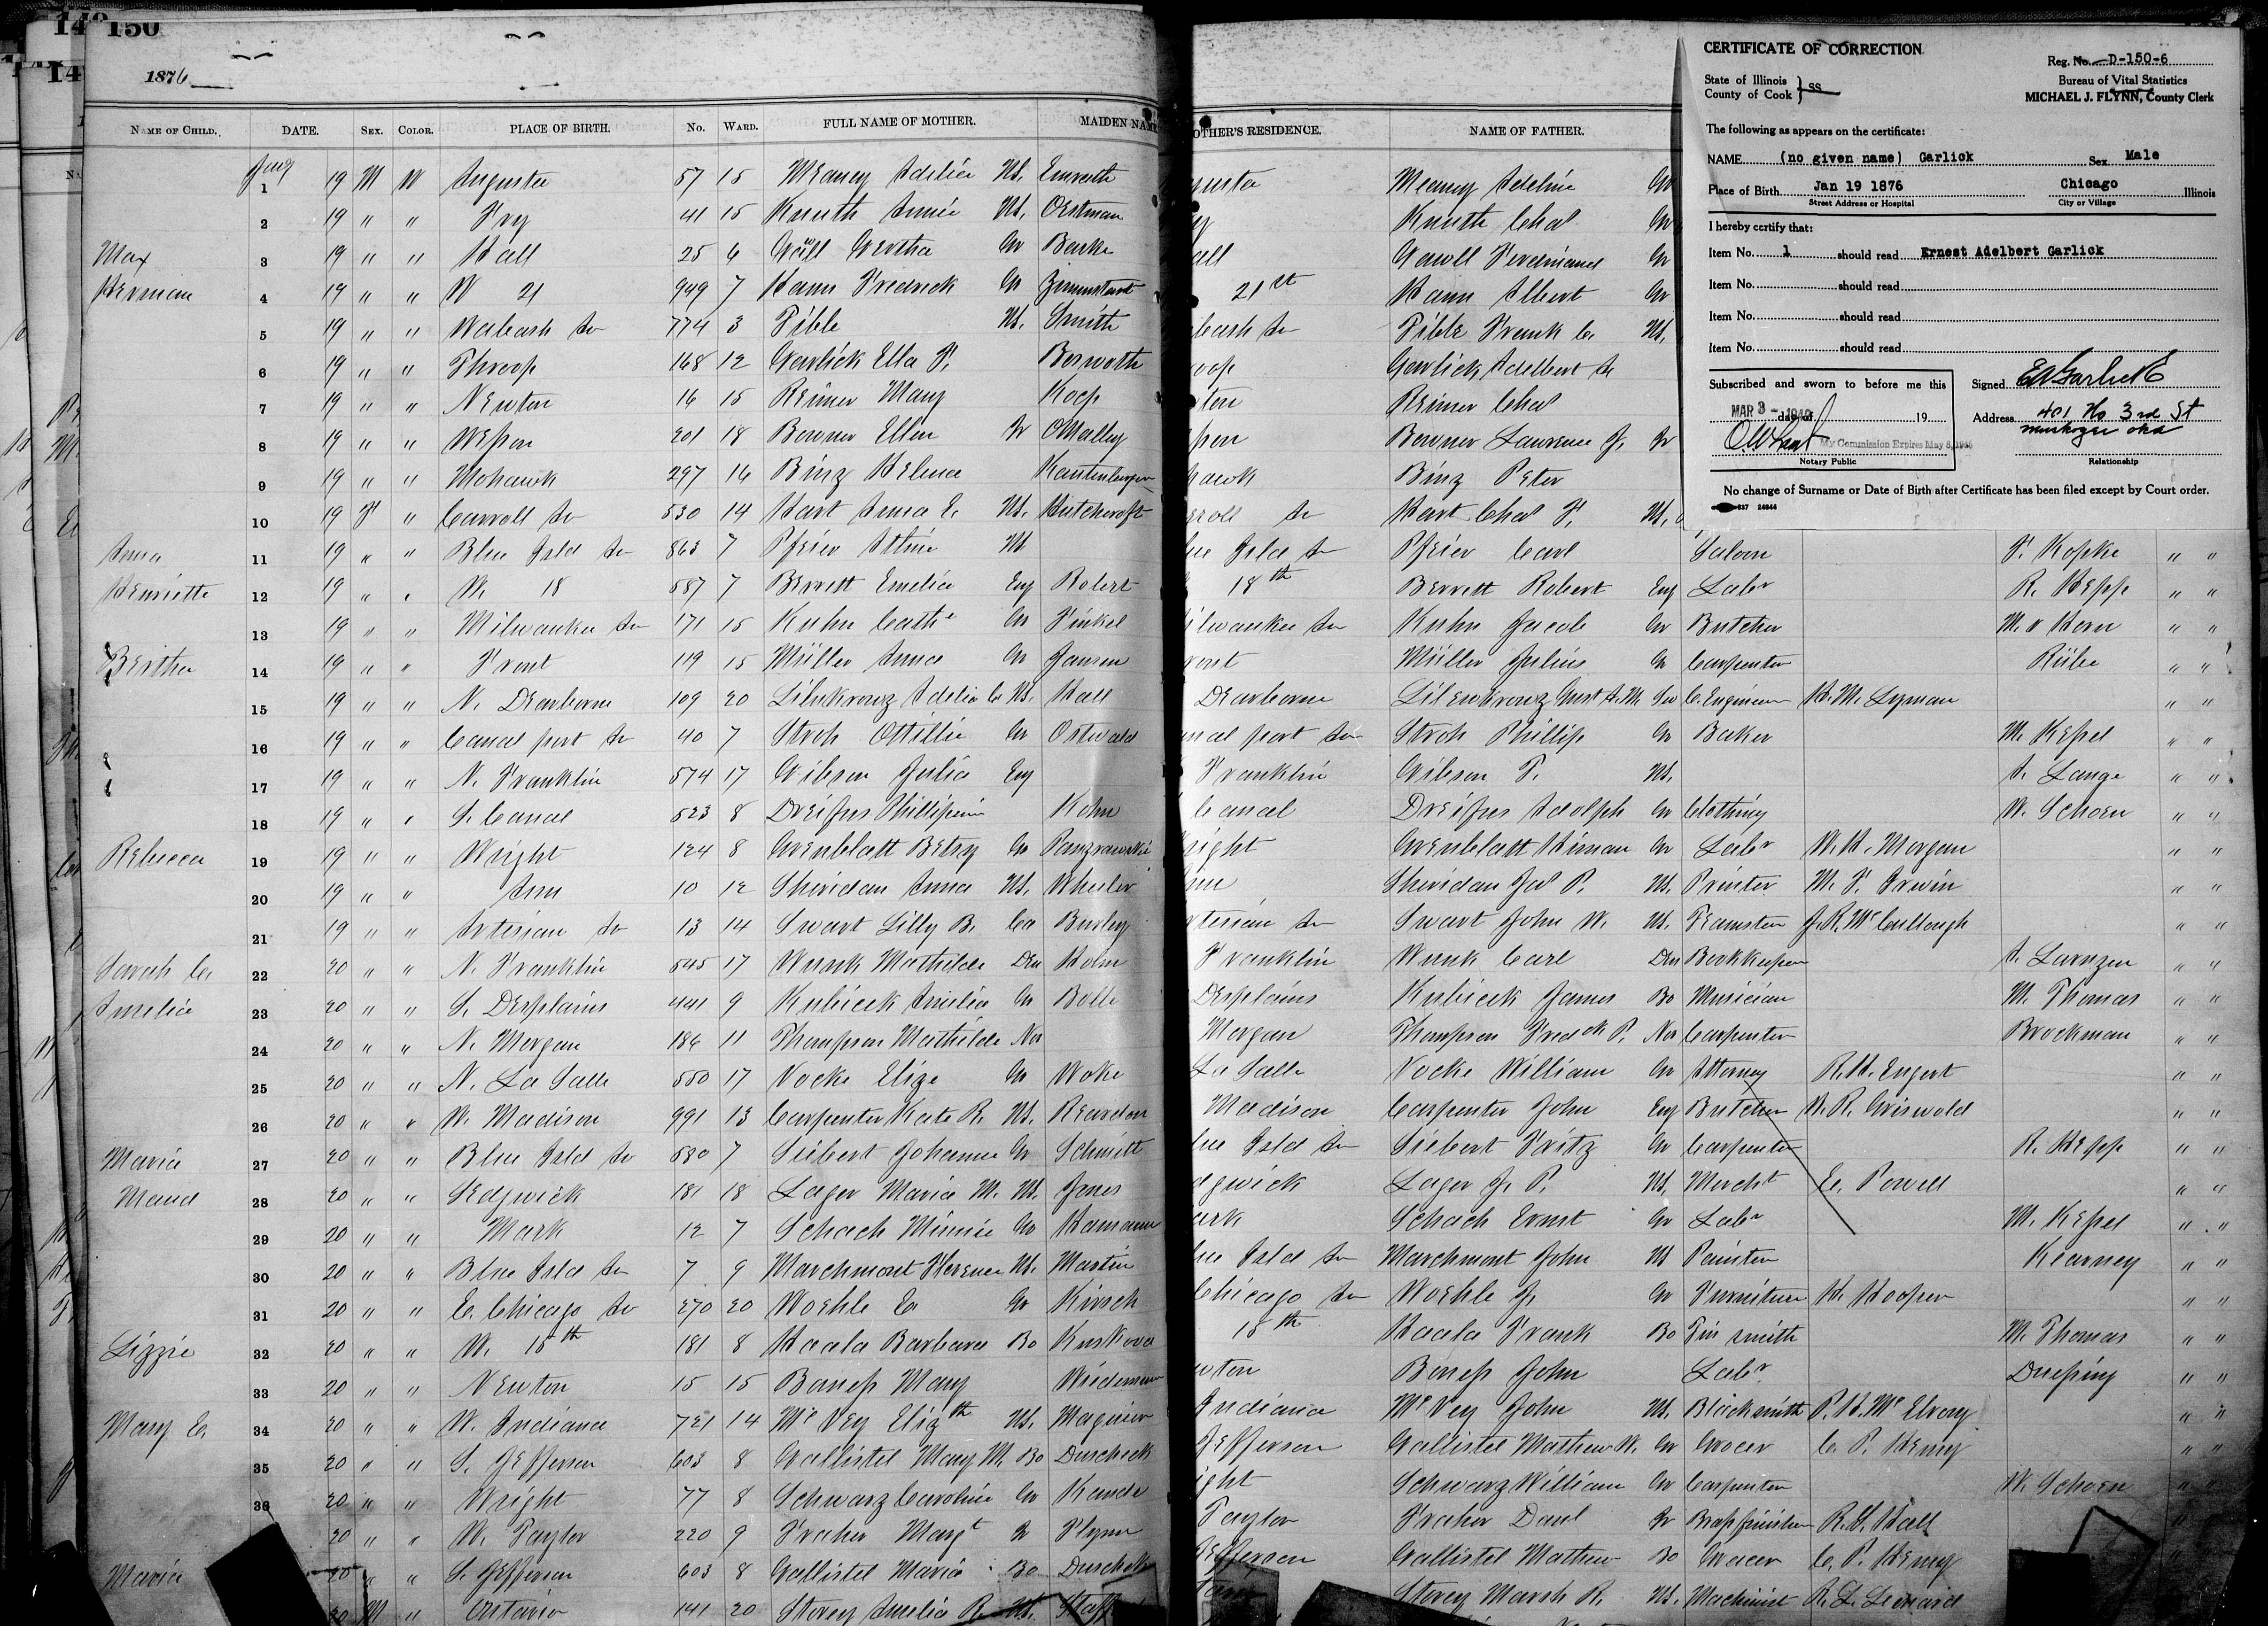 149 150
14
1876
NAME OF CHILD. DATE. SEX. COLOR. PLACE OF BIRTH. No. WARD. FULL NAME OF MOTHER. MAIDEN NAME
Jan 1 19 M W Augusta 57 15 Meaney Adelia US.
2 19 " " Fry 41 15 Knuth Annie US. Oestman
Max 3 19 " " Hall 25 6 Gr
Herman 4 19 " " W 21 949 7 Hann Fredrick Gr
5 19 " " Wabash Av 774 3 Tible US. Smith
6 19 " " Throop 168 12 Garlick Ella F. Bosworth
7 19 " " Newton 16 15 Reimer Mary Koop
8 19 " " Wesson 201 18 Bowner Ellen Ir OMalley
9 19 " " Mohawk 297 16 Binz Helena
10 19 F " Carroll Av 530 14 Hart Anna E. US. Hutchcroft
Anna 11 19 " " Blue Isld Av 863 7 Pfeier US
Henriette 12 19 " " W. 18 587 7 Berrett Emelia Eng Robert
13 19 " " Milwaukee Av 171 15 Kuhn Cathe Gr Finkel
Bertha 14 19 " " Front 119 15 Müller Anna Gr Jansen
15 19 " " N. Dearborne 109 20 Lilnkranz Adelia C US. Hall
16 19 " " Canal port Av 40 7 Stroh Ottillie Gr Ostwald
17 19 " " N. Franklin 574 17 Gibson Julia Eng
18 19 " " S. Canal 523 8 Dreifus Phillipein Kohn
Rebecca 19 19 " " Wright 124 8 Grenblatt Betsy Gr
20 19 " " Ann 10 12 Sheridan Anna US. Wheeler
21 19 " " Artesian Av 13 14 Swart Lilly B. Ca Burley
Sarah C. 22 20 " " N. Franklin 545 17 Wunk Mathilde Den Holm
Amelia 23 20 " " S. Desplains 441 9 Kubicek Amelia Gr Bolle
24 20 " " N. Morgan 186 11 Thompson Mathilde Nor
25 20 " " N. La Salle 550 17 Vocke Elize Gr Woke
26 20 " " W. Madison 991 13 Carpenter Kate R. US. Reardon
Maria 27 20 " " Blue Isld Av 530 7 Siebert Johanna Gr Schmitt
Maud 28 20 " " Sedgwick 181 18 Lager Maria M. US. Jones
29 20 " " Mark 12 7 Schach Minnie Gr Hamann
30 20 " " Blue Isld Av 7 9 Marchmont Florence US. Martin
31 20 " " E. Chicago Av 270 20 Woehle C. Gr Kirsch
Lizzie 32 20 " " W. 15th 181 8 Kacala Barbara Bo Kuskova
33 20 " " Newton 15 15 Boness Mary
Mary E. 34 20 " " W. Indiana 721 14 McVey Elizth US. Maguire
35 20 " " S. Jefferson 603 8 Gallistel Mary M. Bo Duscheck
36 20 " " Wright 77 8 Schwarz Caroline Gr
20 " " W. Taylor 220 9 Fraher Margt Ir Flynn
Maria 20 " " S. Jefferson 603 8 Gallistel Maria Bo
20 M " Ontario 141 20 Storey Amelia R. US.
OTHER'S RESIDENCE. NAME OF FATHER.
gusta Meaney Adeline Gr
Knuth Chas Gr
all Gawll Ferdinand Gr
21st Hann Albert Gr
bash Av Tible Frank C. US.
oop Garlick Adelbert
ton Reimer Chas
sson Bowner Lawrence J. Ir
hawk Binz Peter
rroll Av Hart Chas F. US.
ue Isld Av Pfeier Carl Saloon F. Kopke " "
18th Berrett Robert Eng Labr R. Hepp " "
ilwaukee Av Kuhn Jacob Gr Butcher M. v Horn " "
ront Müller Julius Gr Carpenter Rübe " "
Dearborne Lilenkranz Gust A.M. Sw C. Engineer H. M. Lyman " "
nal port Av Stroh Phillip Gr Baker M. Kessel " "
Franklin Gibson T. US. A. Lange " "
Canal Dreifus Adolph Gr Clothing W. Schoen " "
right Grenblatt Himan Gr Labr W. H. Morgan " "
nn Sheridan Jas P. US. Printer M. F. Irwin " "
rtesian Av Swart John W. US. Teamster J. R. McCullough " "
Franklin Wunk Carl Den Bookkeeper A. Larnzen " "
Desplains Kubicek James Bo Musician M. Thomas " "
Morgan Thompson Fredck P. Nor Carpenter Brockman " "
La Salle Vocke William Gr Attorney R. H. Engert " "
Madison Carpenter John Eng Butcher W. R. Griswold " "
lue Isld Av Siebert Fritz Gr Carpenter R. Hepp " "
dgwick Lager J. P. US, Mercht E. Powell " "
ark Schach Ernst Gr Labr M. Kessel " "
lue Isld Av Marchmont John US Painter Kearney " "
Chicago Av Woehle J. Gr Furniture H. Hooper " "
15th Kacala Frank Bo Tin smith M. Thomas " "
wton Boness John Labr Duesing " "
Indiana McVey John US. Blacksmith P. H. McElroy " "
Jefferson Gallistel Mathew W. Gr Grocer C. P. Henry " "
ight Schwarz William Gr Carpenter W. Schoen " "
Taylor Fraher Danl Ir Brass finisher R. S. Hall
Jefferson Gallistel Mathew Bo Grocer C. P. Henry
Storey Marsh R. US. Machinist R. L. Leonard
CERTIFICATE OF CORRECTION
Reg. No. D-150-6
State of Illinois } ss
County of Cook
Bureau of Vital Statistics
MICHAEL J. FLYNN, County Clerk
The following as appears on the certificate:
NAME (no given name) Garlick Sex Male
Place of Birth Jan 19 1876 Chicago Illinois
Street Address or Hospital City or Village
I hereby certify that:
Item No. 1 should read Ernest Adelbert Garlick
Item No. should read
Item No. should read
Item No. should read
Subscribed and sworn to before me this
MAR 3 - 1942 day of 19
My Commission Expires May 8, 1944
Notary Public
Signed EA Garlick
Address 401 No 3rd St
Muskogee Okla
Relationship
No change of Surname or Date of Birth after Certificate has been filed except by Court order.
837 24844